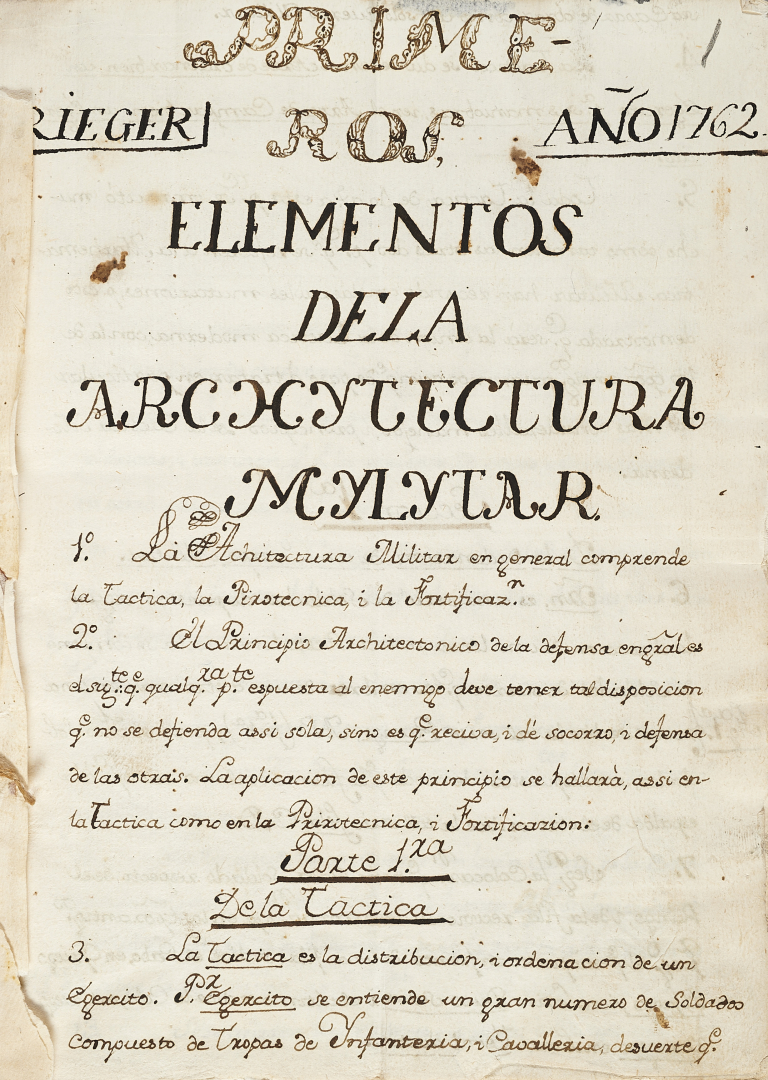 PRIME-
RIEGER
ROS,
AÑO 1762.
ELEMENTOS
DE LA
ARCHYTECTURA
MYLYTAR.
1º. La Achitectura Militar en general comprende
la Tactica, la Pirotecnica, i la Fortificaz.n
2º. El Principio Architectonico de la defensa en gral es
el sig.te: q.e qualq.ra p.te espuesta al enemigo deve tener tal disposicion
q.e no se defienda assi sola, sino es q.e reciva, i dé socorro, i defensa
de las otras. La aplicacion de este principio se hallarà, assi en-
la Tactica como en la Prirotecnica, i Fortificazion:
Parte 1.ra
De la Tactica
3. La Tactica es la distribución, i ordenacion de un
Egercito. P.r Egercito se entiende un gran numero de Soldados
compuesto de Tropas de Ynfanteria, i Cavalleria, desuerte q.e